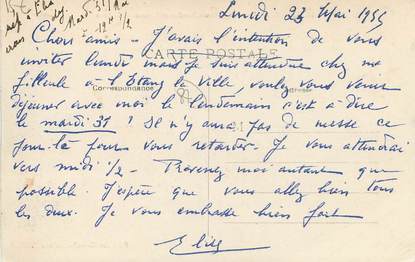 Lundi 23 Mai 1955
Mardi 31 Mai
12H 1/2
Chers amis – J'avais l'intention de vous
CARTE POSTALE
inviter lundi mais je suis attendue chez ma
filleule à l'Etang la Ville, voulez vous venir
Correspondance
déjeuner avec moi le lendemain c'est à dire
le mardi 31? Il n'y aura pas de messe ce
jour-là pour vous retarder. Je vous attendrai
vers midi 1/2 – Prévenez moi autant que
possible. J'espère que vous allez bien tous
les deux. Je vous embrasse bien fort